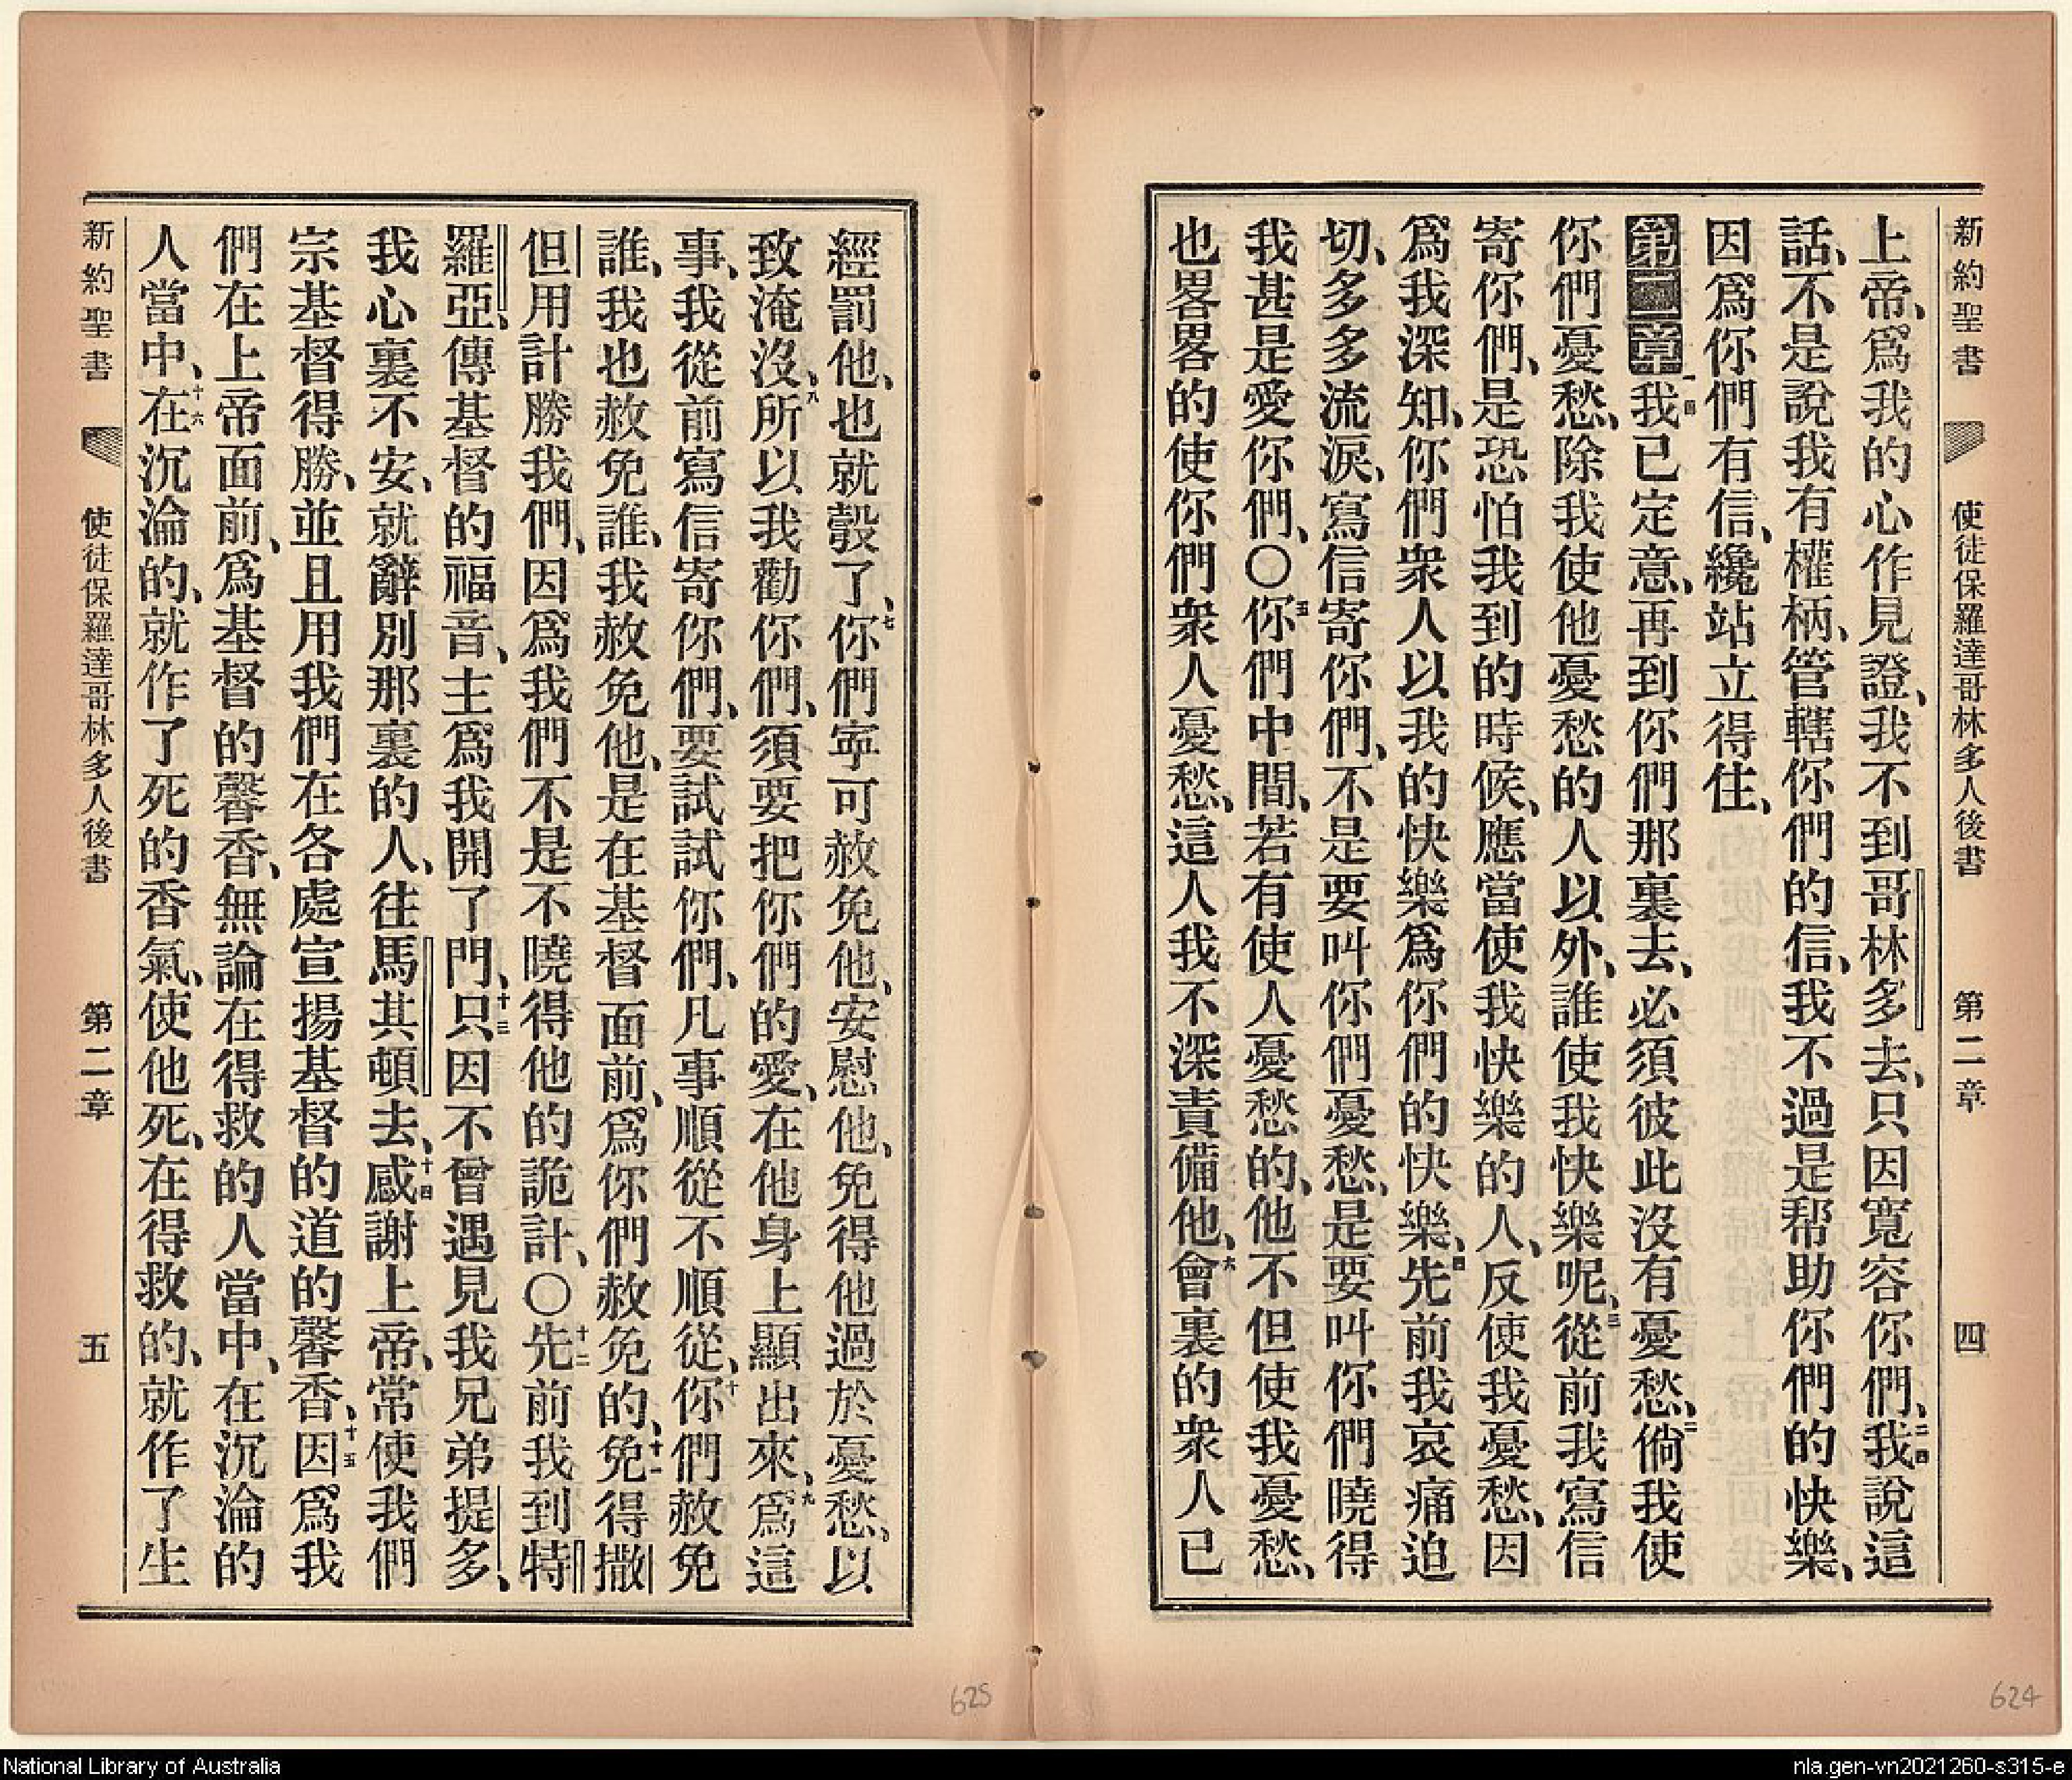 新約聖書 使徒保羅達哥林多人後書 第二章 四
上帝、爲我的心作見證、我不到哥林多去、只因寬容你們、二四我說這
話、不是說我有權柄、管轄你們的信、我不過是帮助你們的快樂、
因爲你們有信、纔站立得住、
第二章一我已定意、再到你們那裏去、必須彼此沒有憂愁、二倘我使
你們憂愁、除我使他憂愁的人以外、誰使我快樂呢、三從前我寫信
寄你們、是恐怕我到的時候、應當使我快樂的人、反使我憂愁、因
爲我深知、你們衆人以我的快樂爲你們的快樂、四先前我哀痛迫
切、多多流淚、寫信寄你們、不是要叫你們憂愁、是要叫你們曉得
我甚是愛你們、〇五你們中間、若有使人憂愁的、他不但使我憂愁、
也畧畧的使你們衆人憂愁、這人我不深責備他、六會裏的衆人已
經罰他、也就彀了、七你們寕可赦免他、安慰他、免得他過於憂愁、以
致淹沒、八所以我勸你們、須要把你們的愛、在他身上顯出來、九爲這
事、我從前寫信寄你們、要試試你們、凡事順從不順從、十你們赦免
誰、我也赦免誰、我赦免他、是在基督面前、爲你們赦免的、十一免得撒
但用計勝我們、因爲我們不是不曉得他的詭計、〇十二先前我到特
羅亞、傳基督的福音、主爲我開了門、十三只因不曾遇見我兄弟提多、
我心裏不安、就辭別那裏的人、往馬其頓去、十四感謝上帝、常使我們
宗基督得勝、並且用我們在各處宣揚基督的道的馨香、十五因爲我
們在上帝面前、爲基督的馨香、無論在得救的人當中、在沉淪的
人當中、十六在沉淪的、就作了死的香氣、使他死、在得救的、就作了生
新約聖書 使徒保羅達哥林多人後書 第二章 五
625
624
National Library of Australia
nla.gen-vn2021260-s315-e